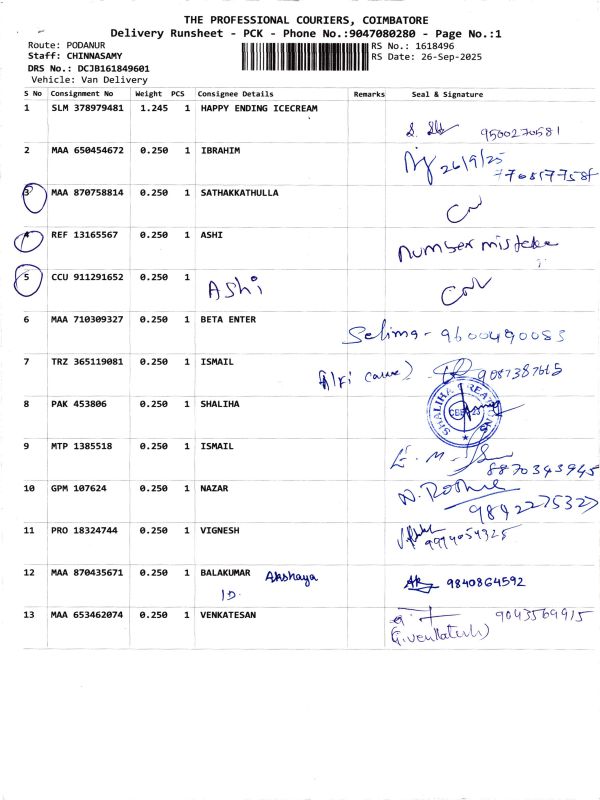 THE PROFESSIONAL COURIERS, COIMBATORE
Delivery Runsheet - PCK - Phone No.:9047080280 - Page No.:1
Route: PODANUR
RS No.: 1618496
Staff: CHINNASAMY
RS Date: 26-Sep-2025
DRS No.: DCJB161849601
Vehicle: Van Delivery
S No Consignment No Weight PCS Consignee Details Remarks Seal & Signature
1 SLM 378979481 1.245 1 HAPPY ENDING ICECREAM
9500270581
2 MAA 650454672 0.250 1 IBRAHIM
26/9/25
3 MAA 870758814 0.250 1 SATHAKKATHULLA
4 REF 13165567 0.250 1 ASHI
Number mistake
5 CCU 911291652 0.250 1 AShi
6 MAA 710309327 0.250 1 BETA ENTER
Selima - 9600490083
7 TRZ 365119081 0.250 1 ISMAIL
9087387665
8 PAK 453806 0.250 1 SHALIHA
SHALIHA CREATIONS
9 MTP 1385518 0.250 1 ISMAIL
8870343945
10 GPM 107624 0.250 1 NAZAR
9842275327
11 PRO 18324744 0.250 1 VIGNESH
9994054325
12 MAA 870435671 0.250 1 BALAKUMAR Akshaya
9840864592
ID.
13 MAA 653462074 0.250 1 VENKATESAN
9043569915
(G.venkatesh)